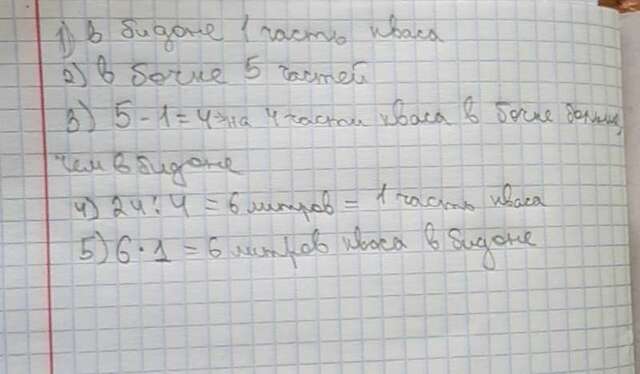 1) в бидоне 1 часть кваса
2) в бочке 5 частей
3) 5 - 1 = 4 на 4 части кваса в бочке больше,
чем в бидоне
4) 24 : 4 = 6 литров = 1 часть кваса
5) 6 · 1 = 6 литров кваса в бидоне